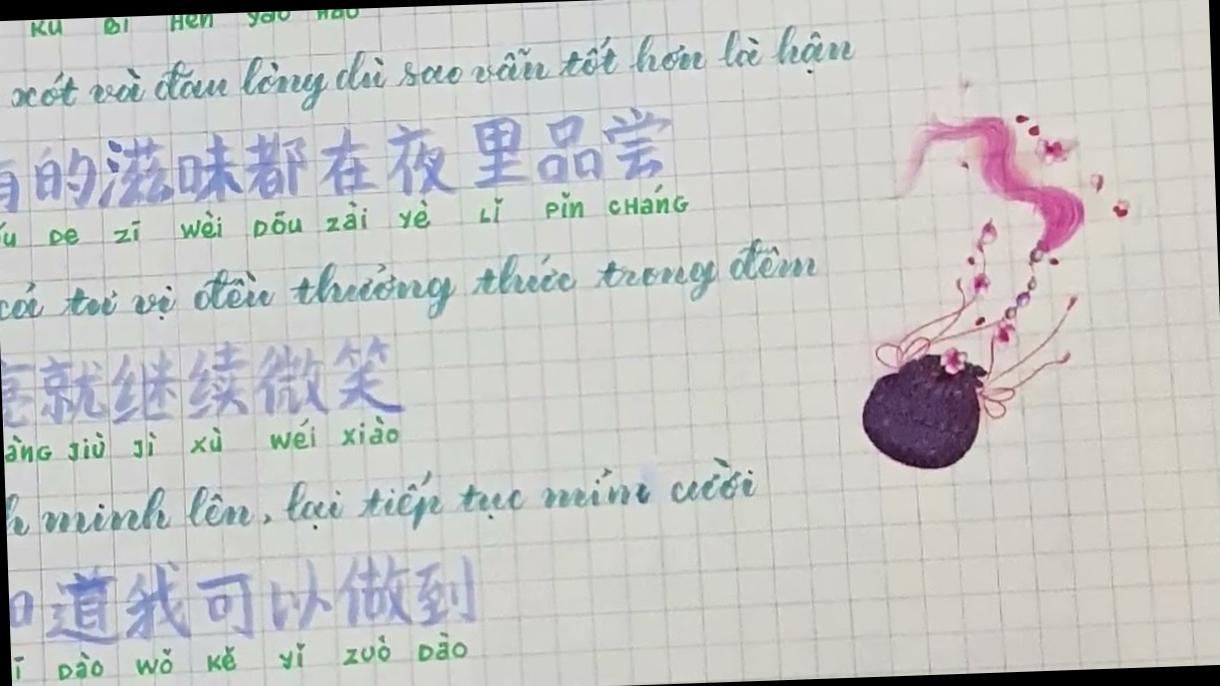 KU BI HEN YAO HAO
xót và đau lòng dù sao vẫn tốt hơn là hận
有的滋味都在夜里品尝
DE ZĪ WÈI DŌU ZÀI YÈ LǏ PǏN CHÁNG
có tư vị đều thưởng thức trong đêm
亮就继续微笑
ÀNG JIÙ JÌ XÙ WÉI XIÀO
minh lên, lại tiếp tục mỉm cười
道我可以做到
DÀO WǑ KĚ YǏ ZUÒ DÀO